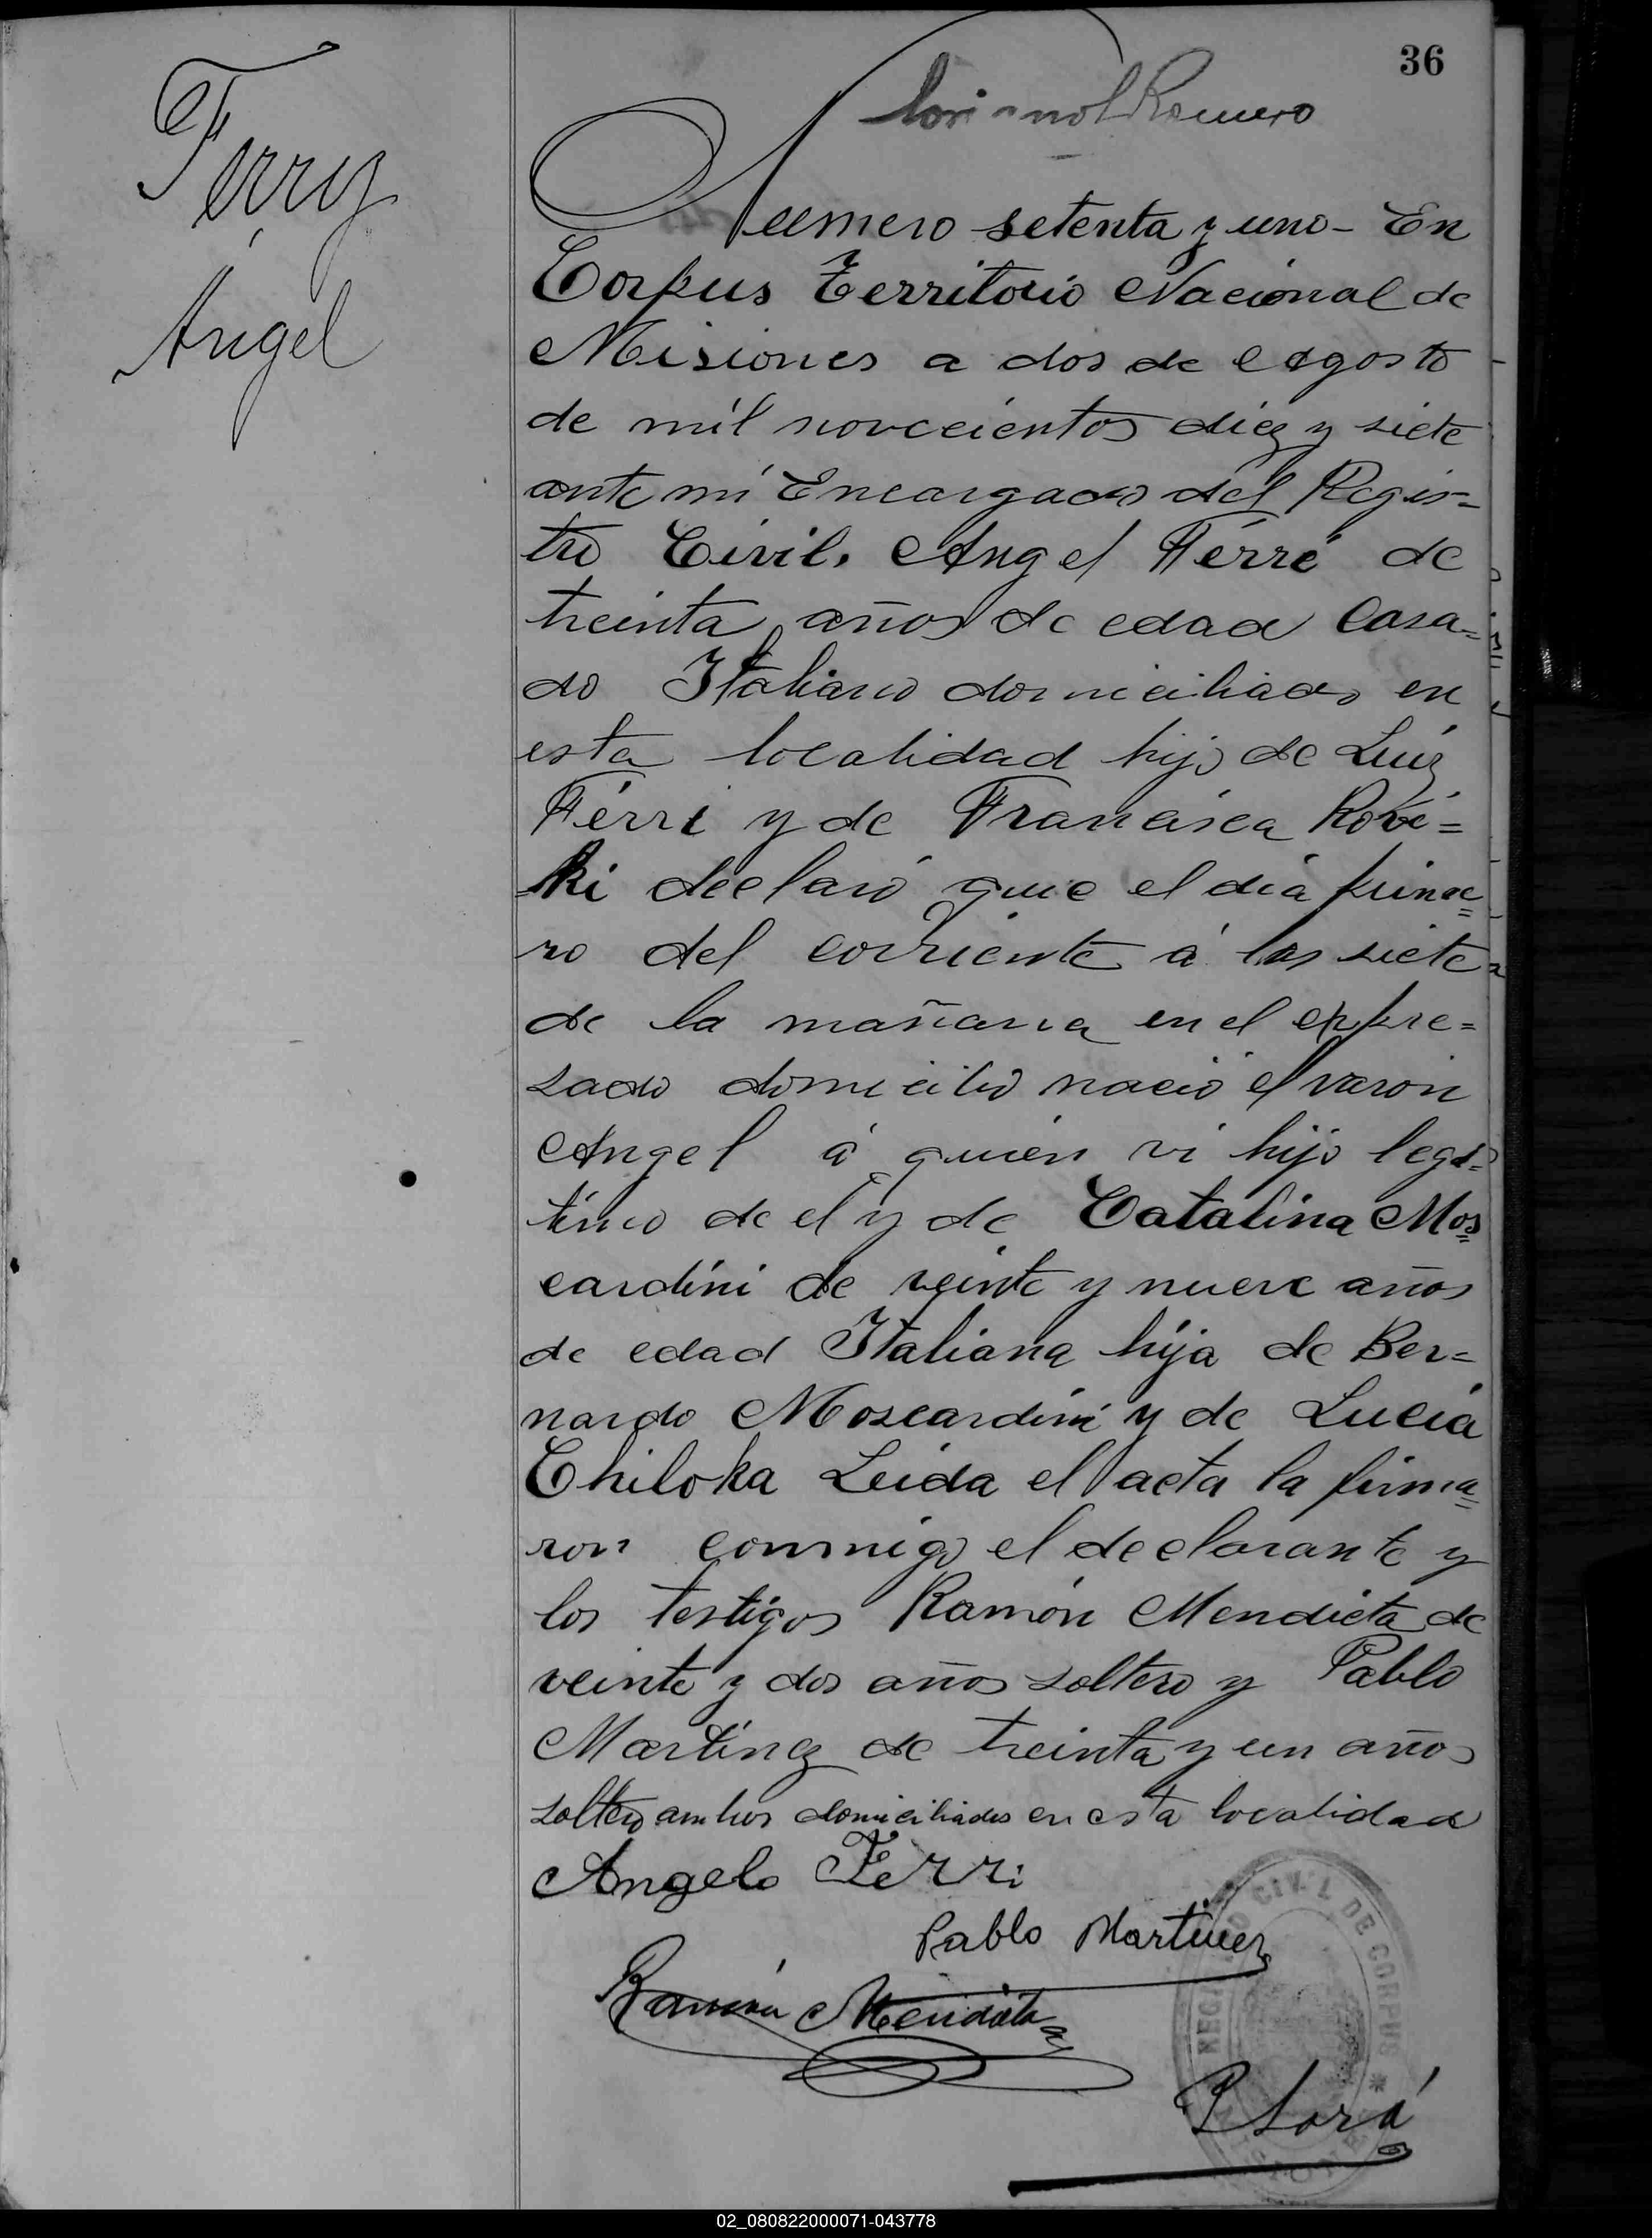 36
Romero
Ferry
Angel
Numero setenta y uno - En
Corpus Territorio Nacional de
Misiones a dos de Agosto
de mil novecientos diez y siete
ante mi Encargado del Regis=
tro Civil. Angel Férré de
treinta años de edad Casa=
do Italiano domiciliado en
esta localidad hijo de Luiz
Férri y de Francisca Rové=
ki declaró que el dia prime=
ro del corriente á las siete
de la mañana en el expre=
sado domicilio nació el varon
Angel á quien vi hijo legi=
timo de el y de Catalina Mos=
cardini de veinte y nueve años
de edad Italiana hija de Ber=
nardo Moscardini y de Lucia
Chiloka Leida el acta la firma=
ron conmigo el declarante y
los testigos Ramón Mendieta de
veinte y dos años soltero y Pablo
Martinez de treinta y un años
soltero ambos domiciliados en esta localidad
Angelo Ferri
Pablo Martinez
Ramón Mendieta
CIVIL DE CORPUS *
P Lorá
02_080822000071-043778